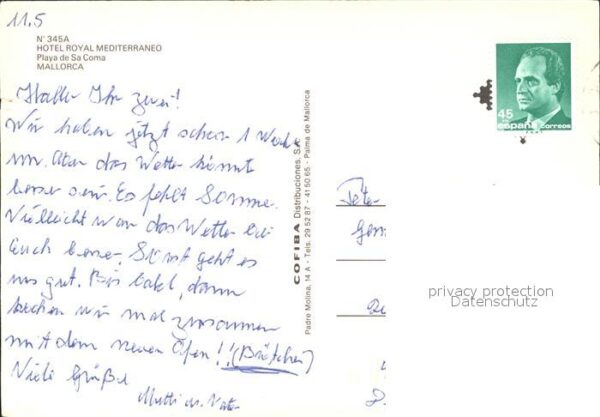 11.5
N° 345A
HOTEL ROYAL MEDITERRANEO
Playa de Sa Coma
MALLORCA
Hallo Ihr zwei!
Wir haben jetzt schon 1 Woche
um. Aber das Wetter könnte
besser sein. Es fehlt Sonne.
Vielleicht war das Wetter bei
Euch besser. Sonst geht es
uns gut. Bis bald, dann
kochen wir mal zusammen
mit dem neuen Ofen!! (Brötchen)
Viele Grüße
Mutti u. Vater
COFIBA Distribuciones, S.A.
Padre Molina, 14 A - Tels. 29 52 87 - 41 50 65 - Palma de Mallorca
45
españa correos
Peter
privacy protection
Datenschutz